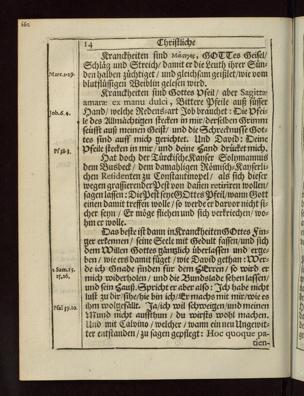 14 Christliche
Kranckheiten sind Μάστιγες, GOTTes Geisel/
Schläg und Streich/ damit er die Leuth ihrer Sün-
den halben züchtiget / und gleichsam geißlet/ wie vom
Marc.1.29. blutflüssigen Weiblin gelesen wird.
Kranckheiten sind Gottes Pfeil / aber Sagittæ
amaræ ex manu dulci, Bittere Pfeile auß süsser
Job.6.4. Hand/ welche Redens-art Job brauchet: Die Pfei-
le des Allmächtigen stecken in mir/derselben Grimm
seüfft auß meinen Geist/ und die Schrecknusse Got-
tes sind auff mich gerichtet. Und David: Deine
Psal.38.3. Pfeile stecken in mir/ und deine Hand drücket mich.
Hat doch der Türckische Kaiser Solymannus
dem Busbeck/ dem damahligen Römisch-Kaiserli-
chen Residenten zu Constantinopel/ als sich dieser
wegen grassierender Pest von dañen retirieren wollen/
sagen lassen: Die Pest seye GOttes Pfeil/ wann Gott
einen damit treffen wolle / so werde er darvor nicht si-
cher seyn / Er möge fliehen und sich verkriechen/ wo-
hin er wolle.
Das beste ist dann in Kranckheiten GOttes Fin-
ger erkennen / seine Seele mit Gedult fassen/ und sich
dem Willen Gottes gäntzlich überlassen und erge-
ben / wie ers damit füget / wie David gethan: Wer-
1.Sam.15. de ich Gnade finden für dem HErren / so wird er
25,26. mich widerholen / und die Bundslade sehen lassen/
und sein Hauß. Spricht er aber also: Ich habe nicht
lust zu dir/ sihe/ hie bin ich/ Er machs mit mir/ wie es
Psal.39.10. ihm wolgefällt. Ja/ich wil schweigen/und meinen
Mund nicht auffthun / du wirsts wohl machen.
Und mit Calvino / welcher / wann ein Ungewit-
ter entstanden/ zu sagen gepflegt: Hoc quoque pa-
tien-